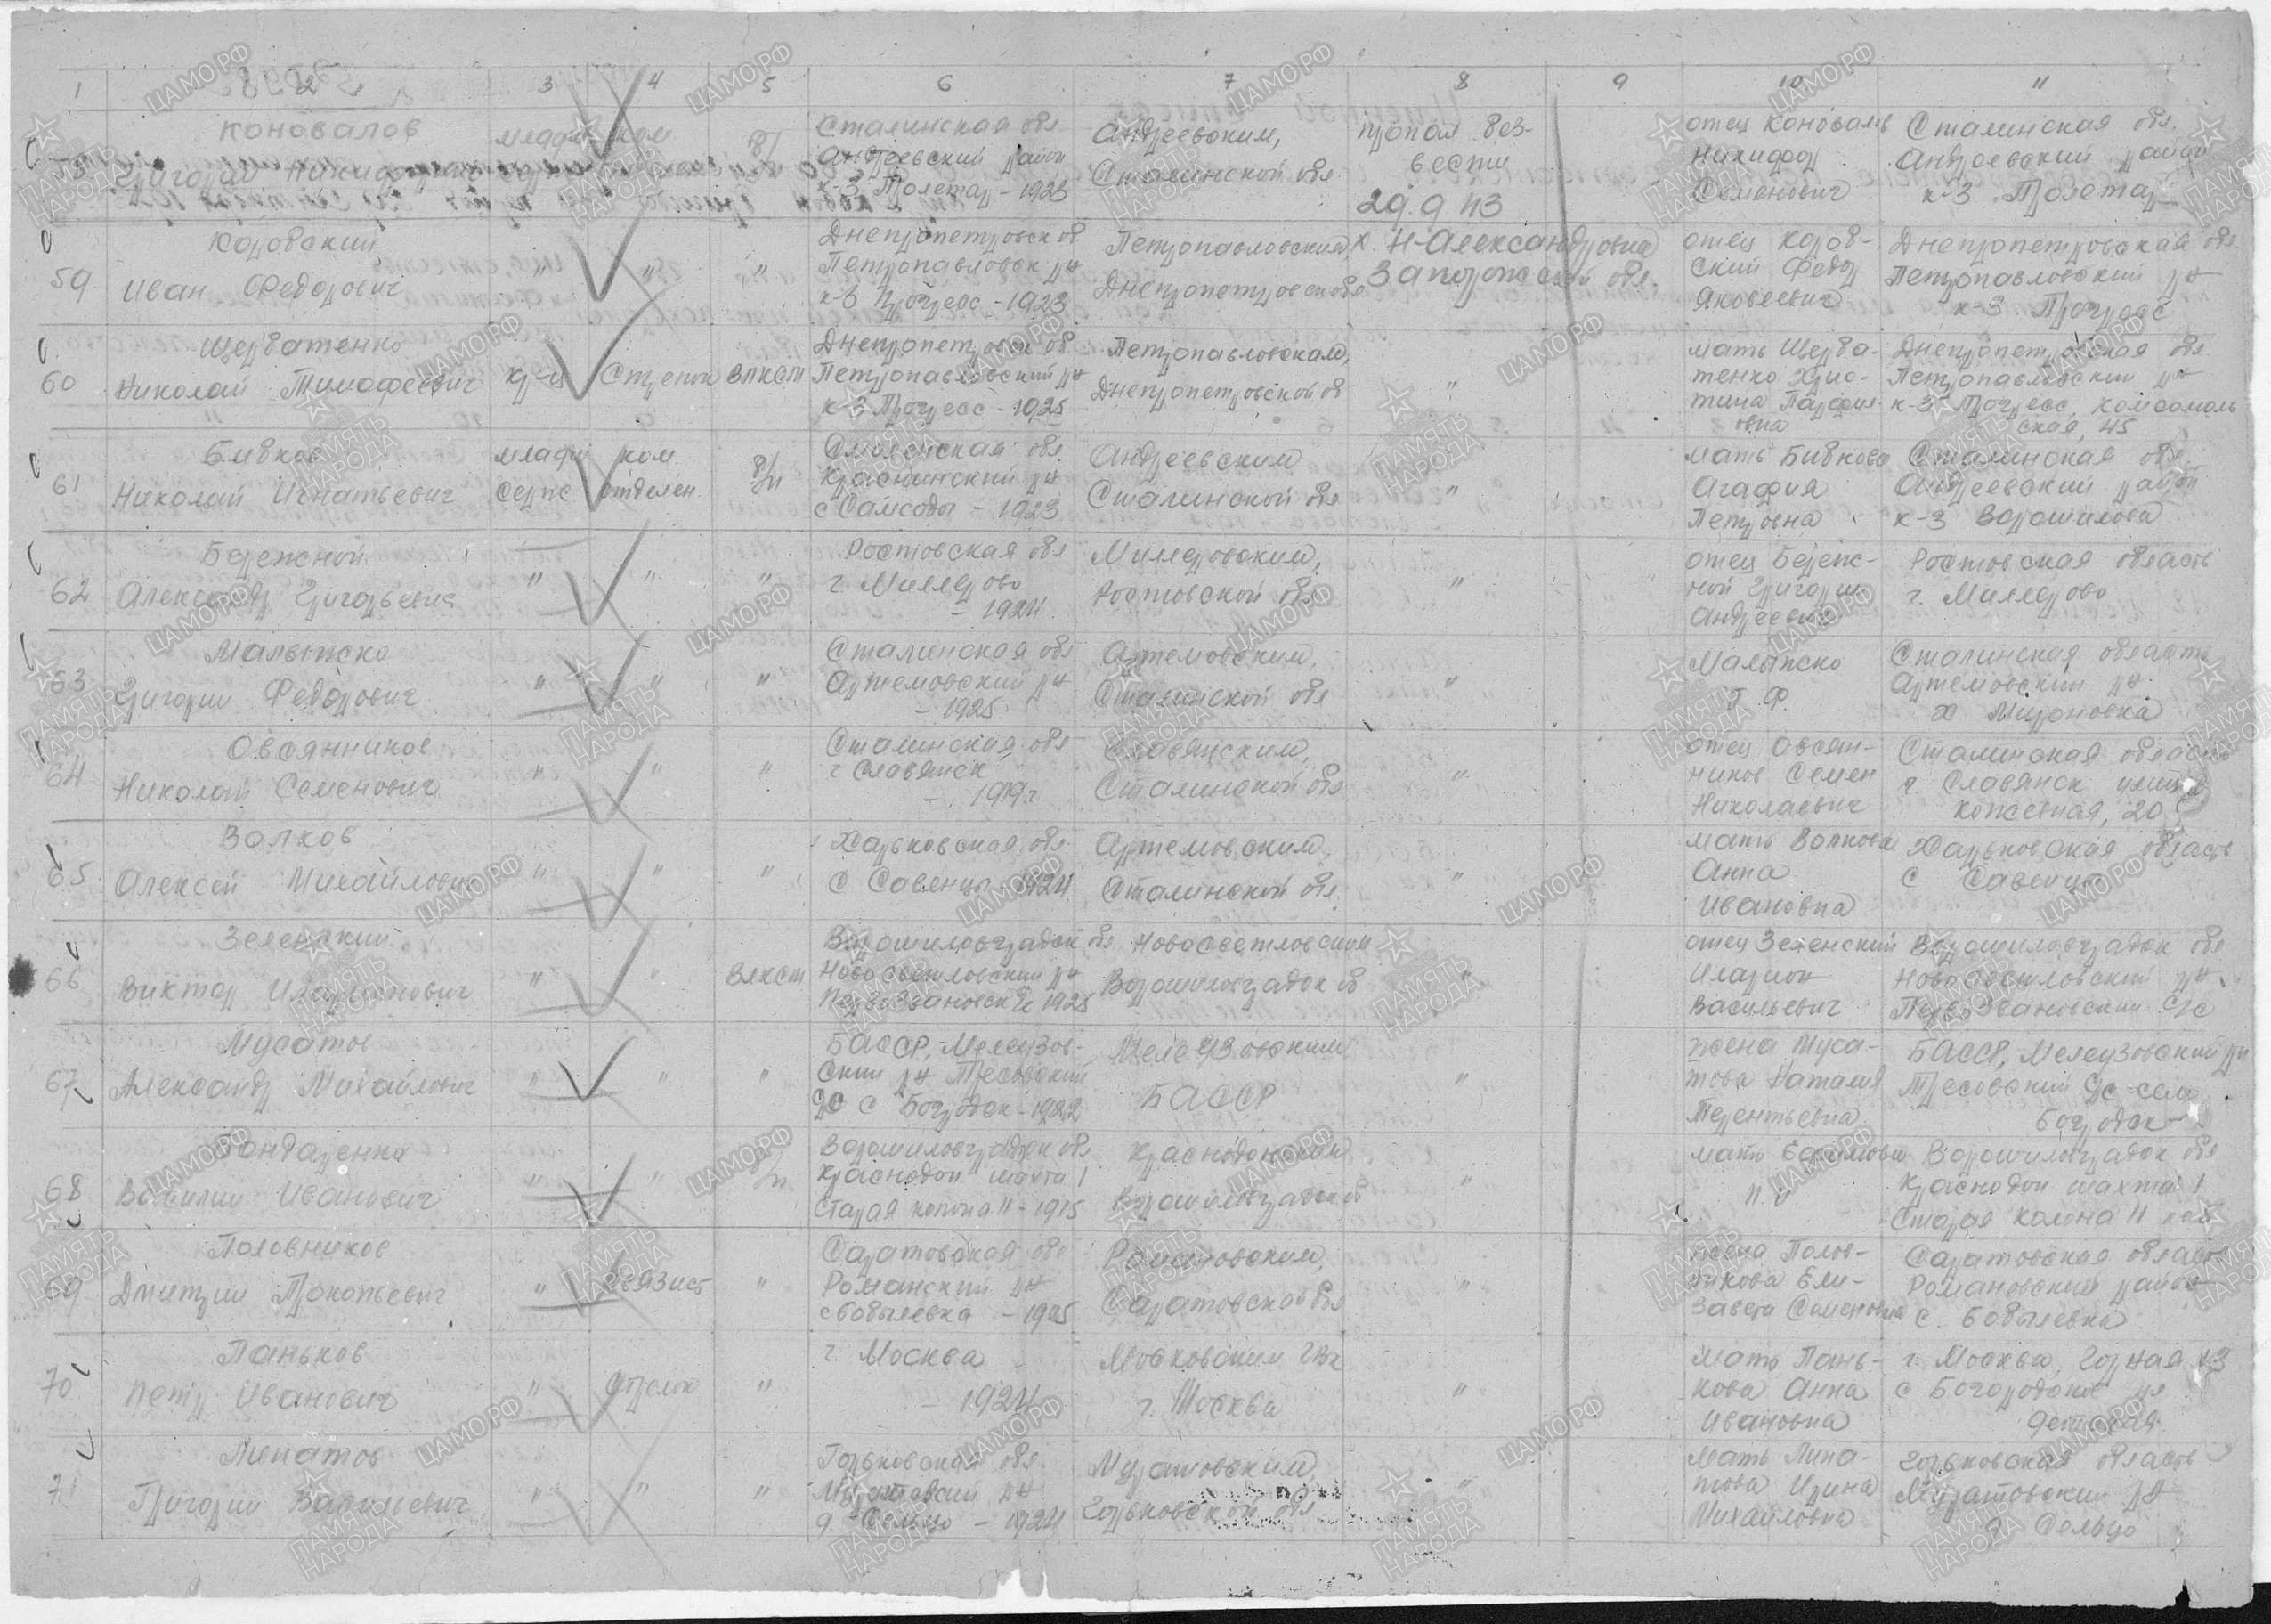 1 2 3 4 5 6 7 8 9 10 11
Коновалов
Григорий Никифорович
младш ком
б/п
Сталинская обл
Андреевский район
к-з Пролетар - 1923
Андреевским,
Сталинской обл
пропал без-
вести
29.9 43
х. Н-Александровка
Запорожской обл.
отец Коновалов
Никифор
Семенович
Сталинская обл.
Андреевский район
к-з Пролетар
59
Коровский
Иван Федорович
" " "
Днепропетровск об
Петропавловск рн
к-з Прогресс - 1923
Петропавловским,
Днепропетровской обл
отец Коров-
ский Федор
Яковлевич
Днепропетровская обл
Петропавловский рн
к-з Прогресс
60
Щербатенко
Николай Тимофеевич
кр-ц Стрелок ВЛКСМ
Днепропетровск об
Петропавловский рн
к-з Прогресс - 1925
Петропавловским,
Днепропетровской об
"
мать Щерба-
тенко Хрис-
тина Парфил
овна
Днепропетровская обл
Петропавловский рн
к-з Прогресс, Комсомоль
ская, 45
61
Бивков
Николай Игнатьевич
младш ком
Серж отделен
б/п
Смоленская обл
Краснинский рн
с Самсоды - 1923
Андреевским
Сталинской обл
"
мать Бивкова
Агафия
Петровна
Сталинская обл.
Андреевский район
к-з Ворошилова
62
Бережной
Александр Григорьевич
" " "
Ростовская обл
г. Миллерово
- 1924
Милеровским,
Ростовской обл
"
отец Береж-
ной Григорий
Андреевич
Ростовская область
г. Миллерово
63
Малыжско
Григорий Федорович
" " "
Сталинская обл
Артемовский рн
- 1925
Артемовским,
Сталинской обл
"
Малыжско
Г. Ф.
Сталинская область
Артемовский рн
х Мироновка
64
Овсянников
Николай Семенович
" " "
Сталинская обл
г Славянск
- 1919г
Славянским,
Сталинской обл
"
отец Овсян-
ников Семен
Николаевич
Сталинская область
г. Славянск улица
20
65
Волков
Алексей Михайлович
" " "
Харьковская обл
с Савенцы 1924
Артемовским,
Сталинской обл
"
мать Волкова
Анна
Ивановна
Харьковская область
с Савенцы
66
Зеленский
Виктор Иларионович
" " ВЛКСМ
Ворошиловградск обл
Новосветловский рн
Первозвановск с/с 1925
Новосветловским
Ворошиловградск об
"
отец Зеленский
Иларион
Васильевич
Ворошиловградск обл
Новосветловский рн
Первозвановский с/с
67
Мусатов
Александр Михайлович
" " "
БАССР, Мелеузов-
ский рн Тресовский
с/с с Богродск - 1922
Мелеузовским
БАССР
"
жена Муса-
това Наталия
Терентьевна
БАССР, Мелеузовский рн
Тресовский с/с село
Богродск
68
Бондаренко
Василий Иванович
" " б/п
Ворошиловградск обл
Краснодон шахта 1
Старая колона 11 - 1915
Краснодонским
Ворошиловградской
"
мать Ефимовна
П. И
Ворошиловградск обл
Краснодон шахта 1
Старая колона 11
69
Половников
Дмитрий Прокопьевич
" связист "
Саратовская обл
Романский рн
с Бобылевка - 1905
Романовским,
Саратовской обл
"
жена Полов-
никова Ели-
завета Семеновна
Саратовская область
Романовский район
с. Бобылевка
70
Паньков
Петр Иванович
" стрелок "
г. Москва
- 1924
Московским ГВк
г. Москва
"
мать Пань-
кова Анна
Ивановна
г. Москва, Горная 43
с Богородское ул
Детская
71
Липатов
Григорий Васильевич
" " "
Горьковская обл.
Муратовский рн
д. Сельцо - 1924
Муратовским,
Горьковской обл
"
мать Липа-
това Ирина
Михайловна
Горьковская область
Муратовский рн
д Сельцо